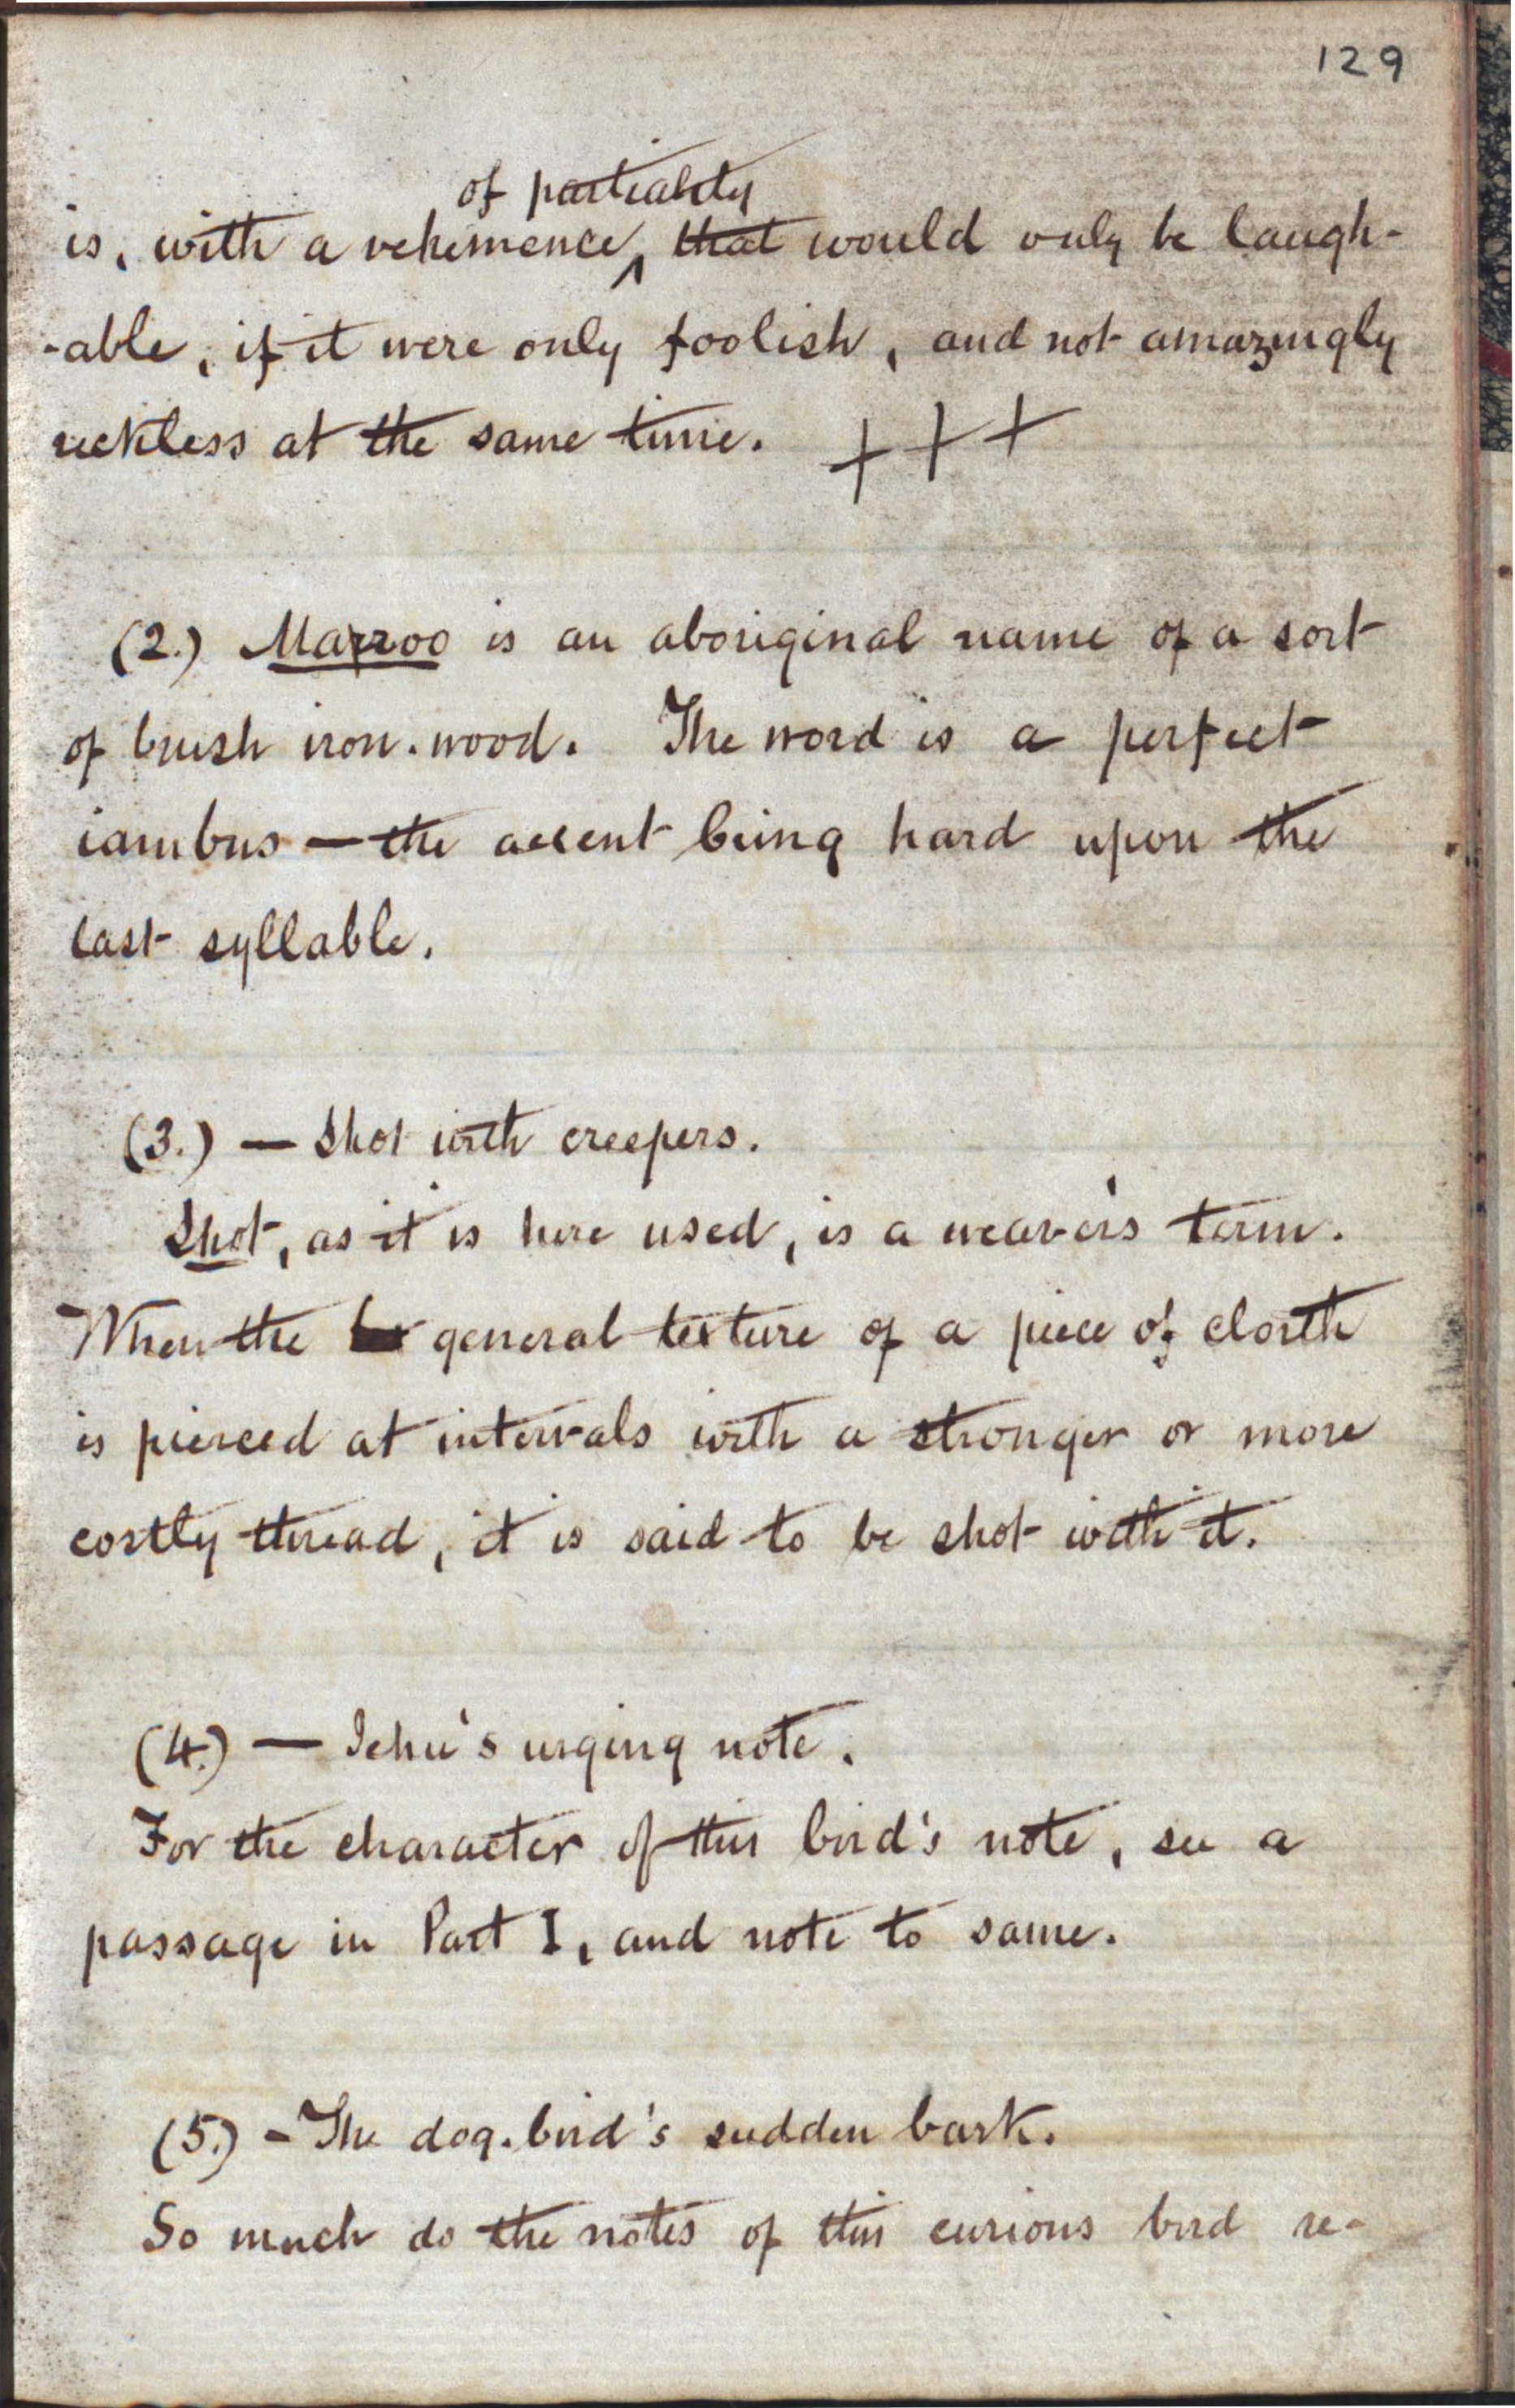 129
of partiality
is, with a vehemence, that would only be laugh-
-able, if it were only foolish, and not amazingly
reckless at the same time. +++
(2.) Marroo is an aboriginal name of a sort
of brush iron-wood. The word is a perfect
iambus — the accent being hard upon the
last syllable.
(3.) — Shot with creepers.
Shot, as it is here used, is a weaver's term.
When the general texture of a piece of cloth
is pierced at intervals with a stronger or more
costly thread, it is said to be shot with it.
(4.) — Jehu's urging note.
For the character of this bird's note, see a
passage in Part I, and note to same.
(5.) - The dog-bird's sudden bark.
So much do the notes of this curious bird re-